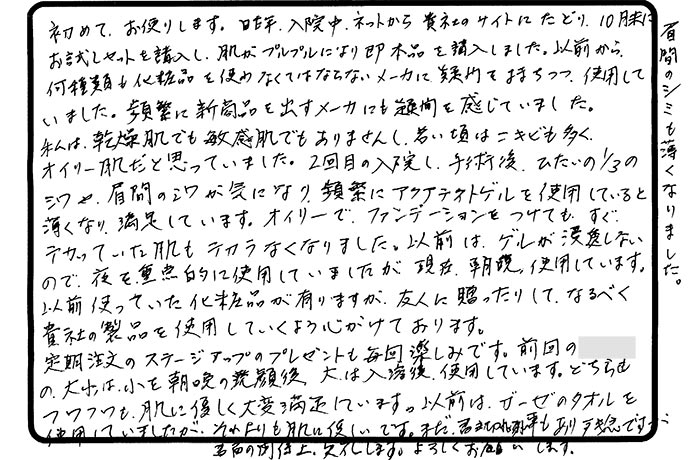 初めて、お便りします。昨年、入院中、ネットから貴社のサイトにたどり、10月末に
お試しセットを購入し、肌がプルプルになり即本品を購入しました。以前から、
何種類も化粧品を使わなくてはならないメーカに疑問をもちつつ、使用して
いました。頻繁に新商品を出すメーカにも疑問を感じていました。
私は、乾燥肌でも敏感肌でもありませんし、若い頃はニキビも多く、
オイリー肌だと思っていました。2回目の入院し、手術後、ひたいの1/3の
シワや、眉間のシワが気になり、頻繁にアクアテクトゲルを使用していると
薄くなり、満足しています。オイリーで、ファンデーションをつけても、すぐ
テカっていた肌もテカらなくなりました。以前は、ゲルが浸透しない
ので、夜を重点的に使用していましたが、現在、朝晩、使用しています。
以前使っていた化粧品が有りますが、友人に贈ったりして、なるべく
貴社の製品を使用していくよう心がけております。
定期注文のステージアップのプレゼントも毎回楽しみです。前回の
の、大小は、小を朝晩の洗顔後、大は入浴後、使用しています。どちらも
フワフワも、肌に優しく大変満足しています。以前は、ガーゼのタオルを
使用していましたが、それよりも肌に優しいです。まだ、
よろしくお願いします。
眉間のシミも薄くなりました。